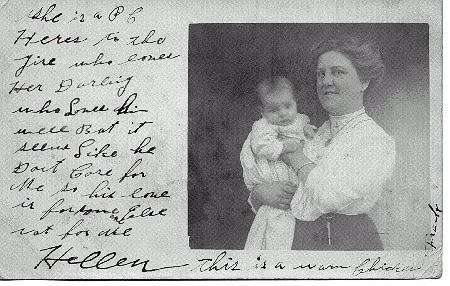 she is a P C
Heres to the
Jire who loves
Her Darling
who Loves him
well But it
seems Like he
Dont Care for
Me so his love
is for some one Else
not for me
Hellen - this is a warm Chicken